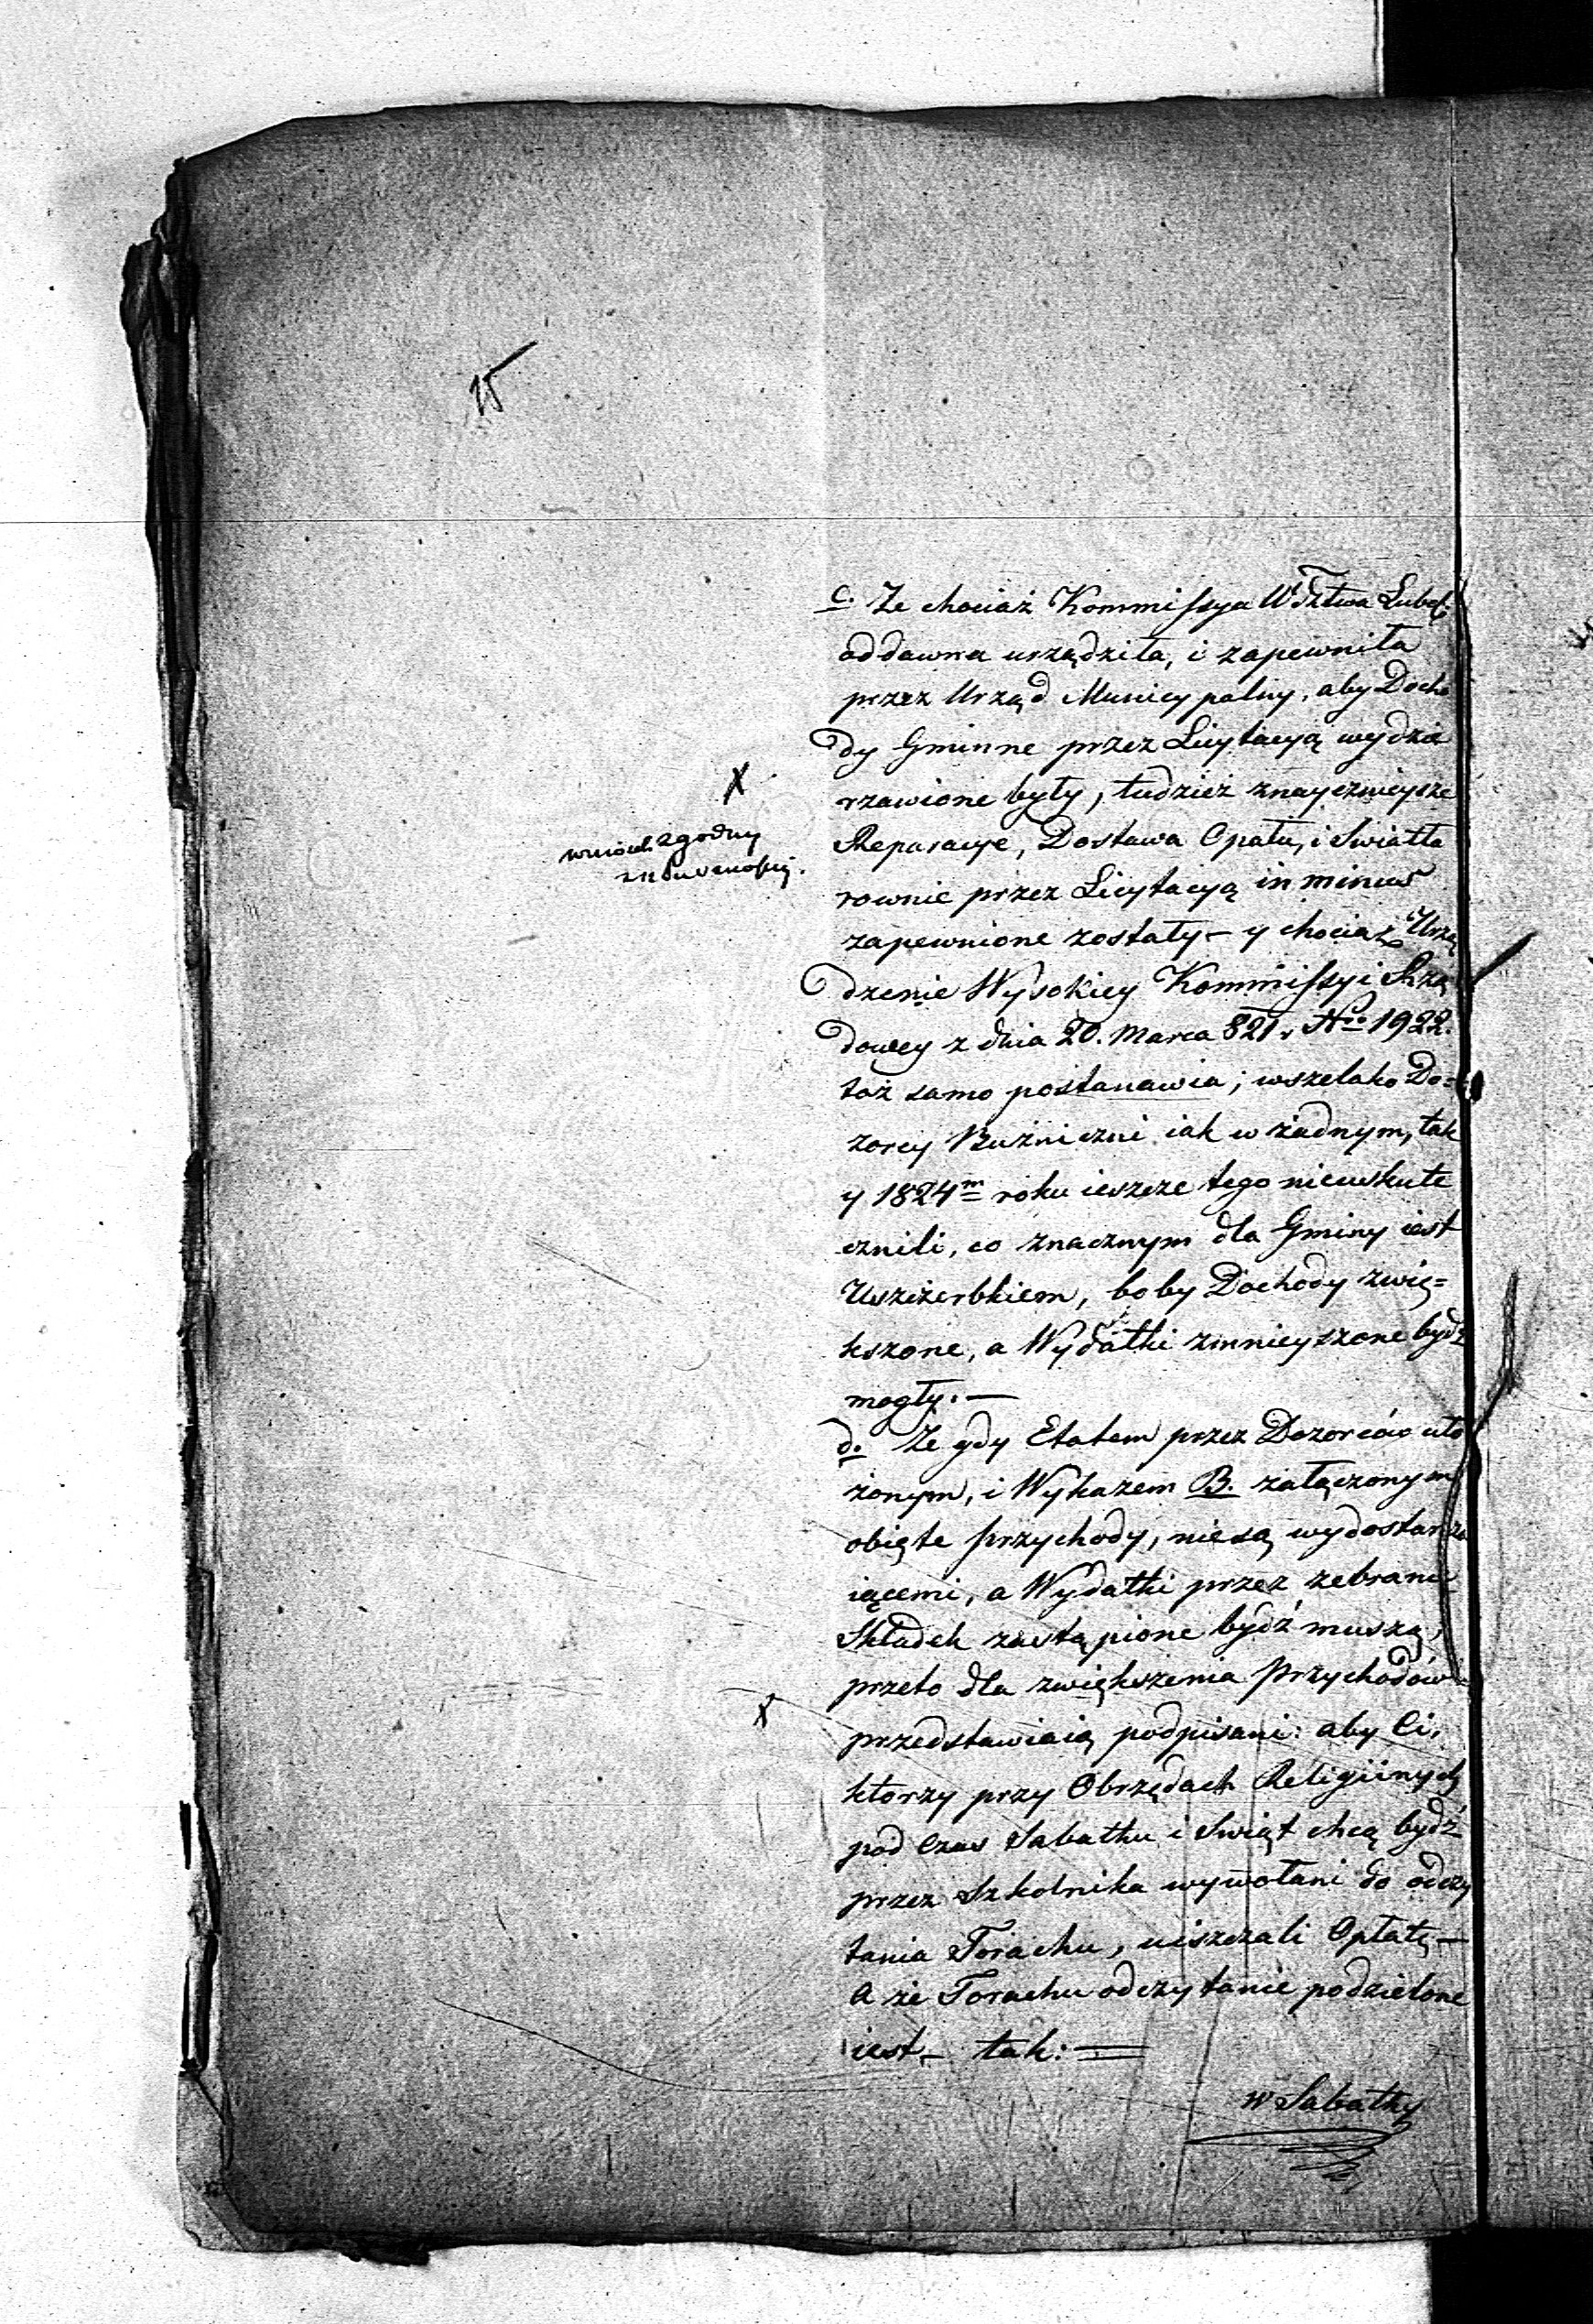 15
c. Ze chociaż Kommissya Wdztwa Lubel:
oddawna urządziła, i zapewniła
przez Urząd Municypalny, aby Docho
dy Gminne przez Licytacyą wydzie
rzawione były, tudzież znaycznieysze
Reparacye, Dostawa Opału, i Swiatła
rownie przez Licytacyą in minus
zapewnione zostały – y chociaż Urzą
dzenie Wysokiey Kommissyi Rzą
dowey z dnia 20. Marca 821 r N<sup>ro</sup> 1922.
toż samo postanawia; wszelako Do=
zorcy Bużniczni iak w żadnym, tak
y 1824<sup>m</sup> roku ieszcze tego nieuskute
cznili, co znacznym dla Gminy iest
Uszczerbkiem, bo by Dochody zwię=
kszone, a Wydatki zmnieyszone bydź
mogły. —
X
wniosek zgodny
d. Ze gdy Etatem przez Dozorców uło
żonym, i Wykazem B. załączonym
obięte przychody, niesą wydostarcza
iącemi, a Wydatki przez zebranie
Składek zastąpione bydź muszą,
przeto dla zwiększenia przychodów
przedstawiaią podpisani: aby Ci,
ktorzy przy Obrzędach Religiinych
pod Czas Sabathu i Swiąt chcą bydź
przez Szkolnika wywołani do odczy
tania Torachu, uiszczali Opłatę –
A że Torachu odczytanie podzielone
iest – tak: =
X
w Sabathy